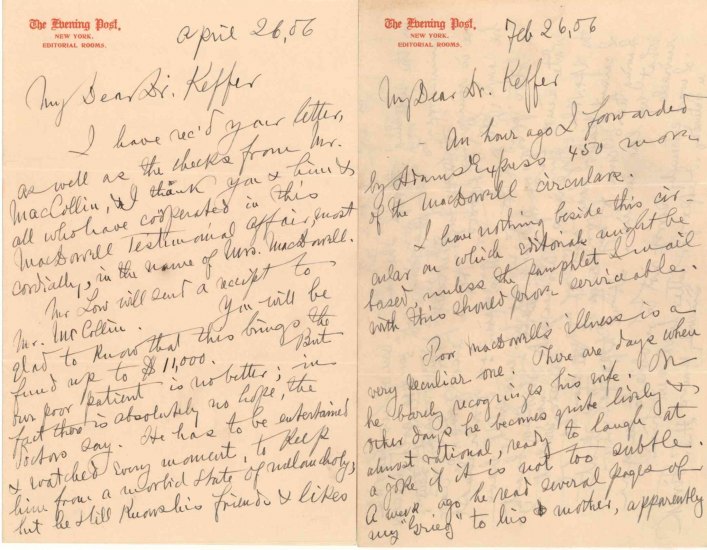 The Evening Post.
NEW YORK.
EDITORIAL ROOMS.
April 26, 06
My Dear Dr. Keffer
I have rec'd your letter,
as well as the checks from Mr.
MacCollin, & I thank you & him &
all who have coöperated in this
MacDowell Testimonial affair, most
cordially, in the name of Mrs. MacDowell.
Mr Low will send a receipt to
Mr. McCollin. You will be
glad to know that this brings the
fund up to $11,000. But
our poor patient is no better; in
fact there is absolutely no hope, the
doctors say. He has to be entertained
& watched every moment, to keep
him from a morbid state of melancholy;
but he still knows his friends & likes
The Evening Post.
NEW YORK.
EDITORIAL ROOMS.
Feb 26, 06
My Dear Dr. Keffer
An hour ago I forwarded
by Adams Express 450 more
of the MacDowell circulars.
I have nothing beside this cir-
cular on which editorials might be
based, unless the pamphlet I mail
with this should prove serviceable.
Poor MacDowell's illness is a
very peculiar one. There are days when
he barely recognizes his wife. On
other days he becomes quite lively &
almost rational, ready to laugh at
a joke if it is not too subtle.
A week ago he read several pages of
my "Grieg" to his mother, apparently